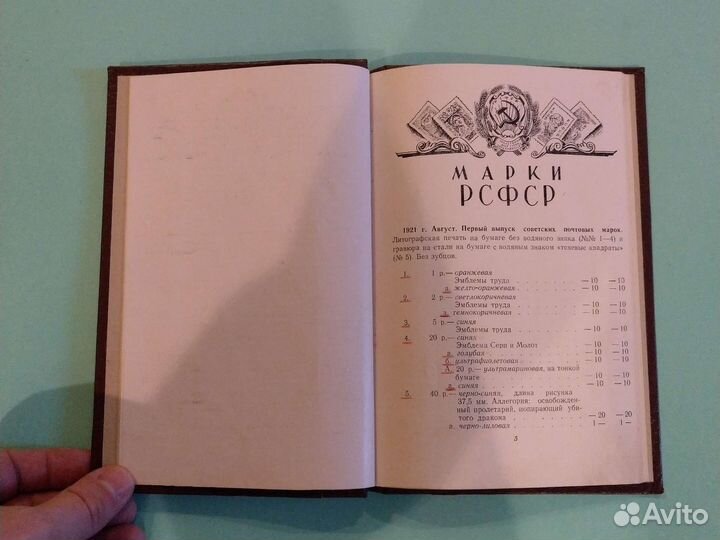 МАРКИ
РСФСР
1921 г. Август. Первый выпуск советских почтовых марок.
Литографская печать на бумаге без водяного знака (№№ 1—4) и
гравюра на стали на бумаге с водяным знаком «теневые квадраты»
(№ 5). Без зубцов.
1. 1 р.— оранжевая
Эмблемы труда . . . . . . . . . —10 —10
а. желто-оранжевая . . . . . . . —10 —10
2. 2 р.— светлокоричневая
Эмблемы труда . . . . . . . . . —10 —10
а. темнокоричневая . . . . . . . —10 —10
3. 5 р.— синяя
Эмблемы труда . . . . . . . . . —10 —10
4. 20 р.— синяя
Эмблема Серп и Молот . . . . . —10 —10
а. голубая . . . . . . . . . . —10 —10
б. ультрафиолетовая . . . . . . —10 —10
А. 20 р.— ультрамариновая, на тонкой
бумаге . . . . . . . . . . —10 —10
а. синяя . . . . . . . . . . —10 —10
5. 40 р.— черно-синяя, длина рисунка
37,5 мм. Аллегория: освобожден-
ный пролетарий, попирающий уби-
того дракона . . . . . . . . . —20 —20
а. черно-лиловая . . . . . . . 1— 1—
5
Avito